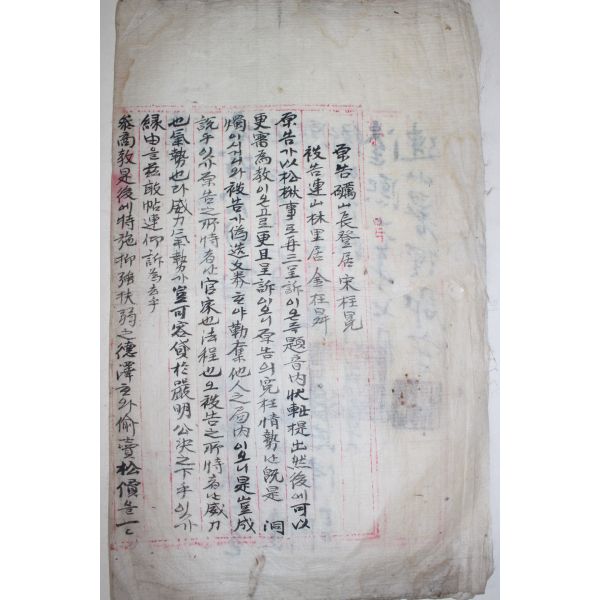 原告礪山長登居宋柱晃
被告連山林里居金在昇
原告가以松楸事로再三呈訴이온즉題音內狀軸提出然後에可以
更審為教이옵고로更且呈訴이오니原告의冤枉情勢난旣是 洞
燭이시려와被告가偽造文券으야勒奪他人之局內이오니是豈成
說乎잇가原告之所恃者난官家也法程也오被告之所恃者난威力
也氣勢也라威力氣勢가豈可容貸於嚴明公決之下乎잇가
緣由을玆敢帖連仰訴為去乎
參商教是後에特施抑强扶弱之德澤으와偷賣松價을一一